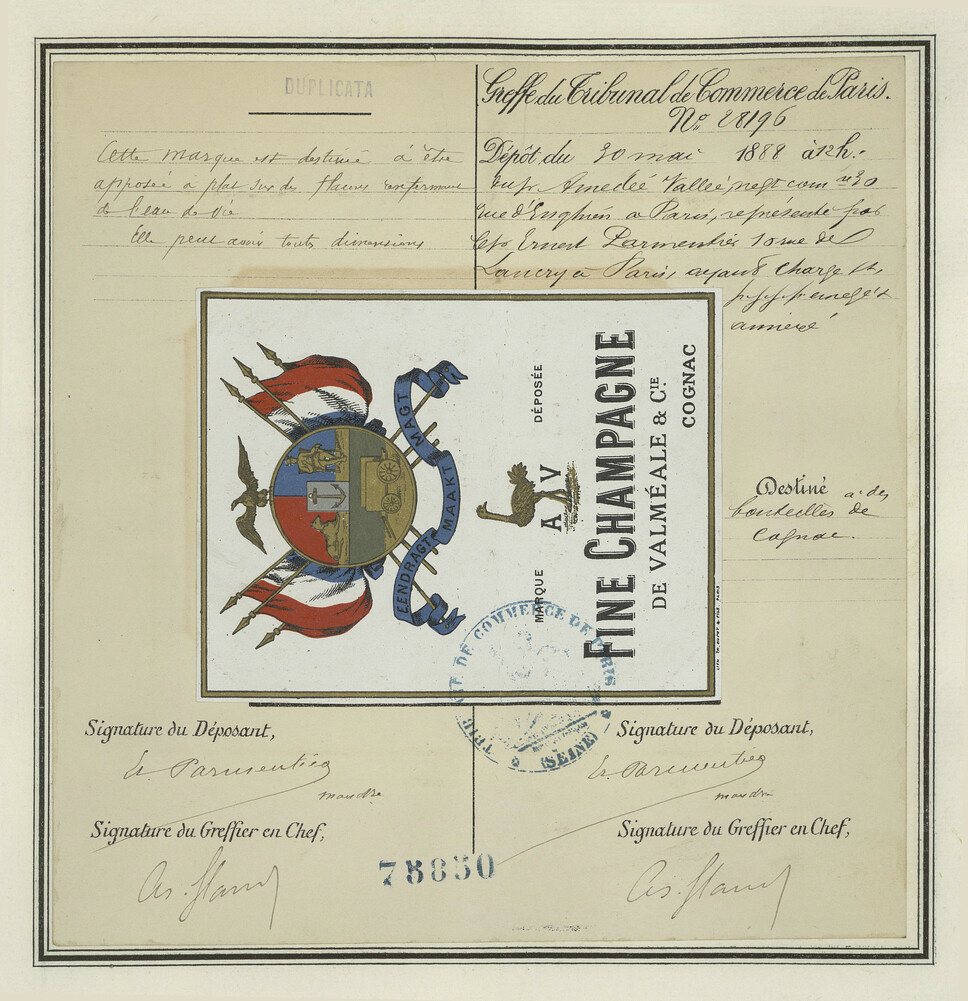 DUPLICATA
Cette marque est destinée à être
apposée à plat sur des flacons renfermant
de l'eau de vie
Elle peut avoir toutes dimensions
Greffe du Tribunal de Commerce de Paris.
No. 28196
Dépôt du 30 mai 1888 à 12 h.
Amedée Vallée, negt com
rue d'Enghien a Paris, représenté par
Ernest Parmentier 10 rue de
Lancry a Paris, ayant charge
annexé
EENDRAGT MAAKT MAGT
MARQUE DÉPOSÉE
A V
FINE CHAMPAGNE
DE VALMÉALE & CIE.
COGNAC
Destiné à des
bouteilles de
Cognac.
TRIBUNAL DE COMMERCE DE PARIS
(SEINE)
Signature du Déposant,
Er. Parmentier
mandre
Signature du Greffier en Chef,
Signature du Déposant,
Er. Parmentier
mandre
Signature du Greffier en Chef,
75850